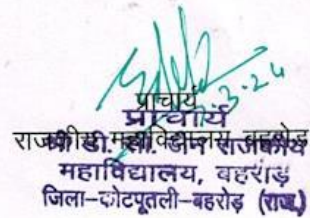 प्राचार्य
प्राचार्य
3.24
राजकीय महाविद्यालय, बहरोड़
राजकीय
महाविद्यालय, बहरोड़
जिला-कोटपूतली-बहरोड़ (राज.)